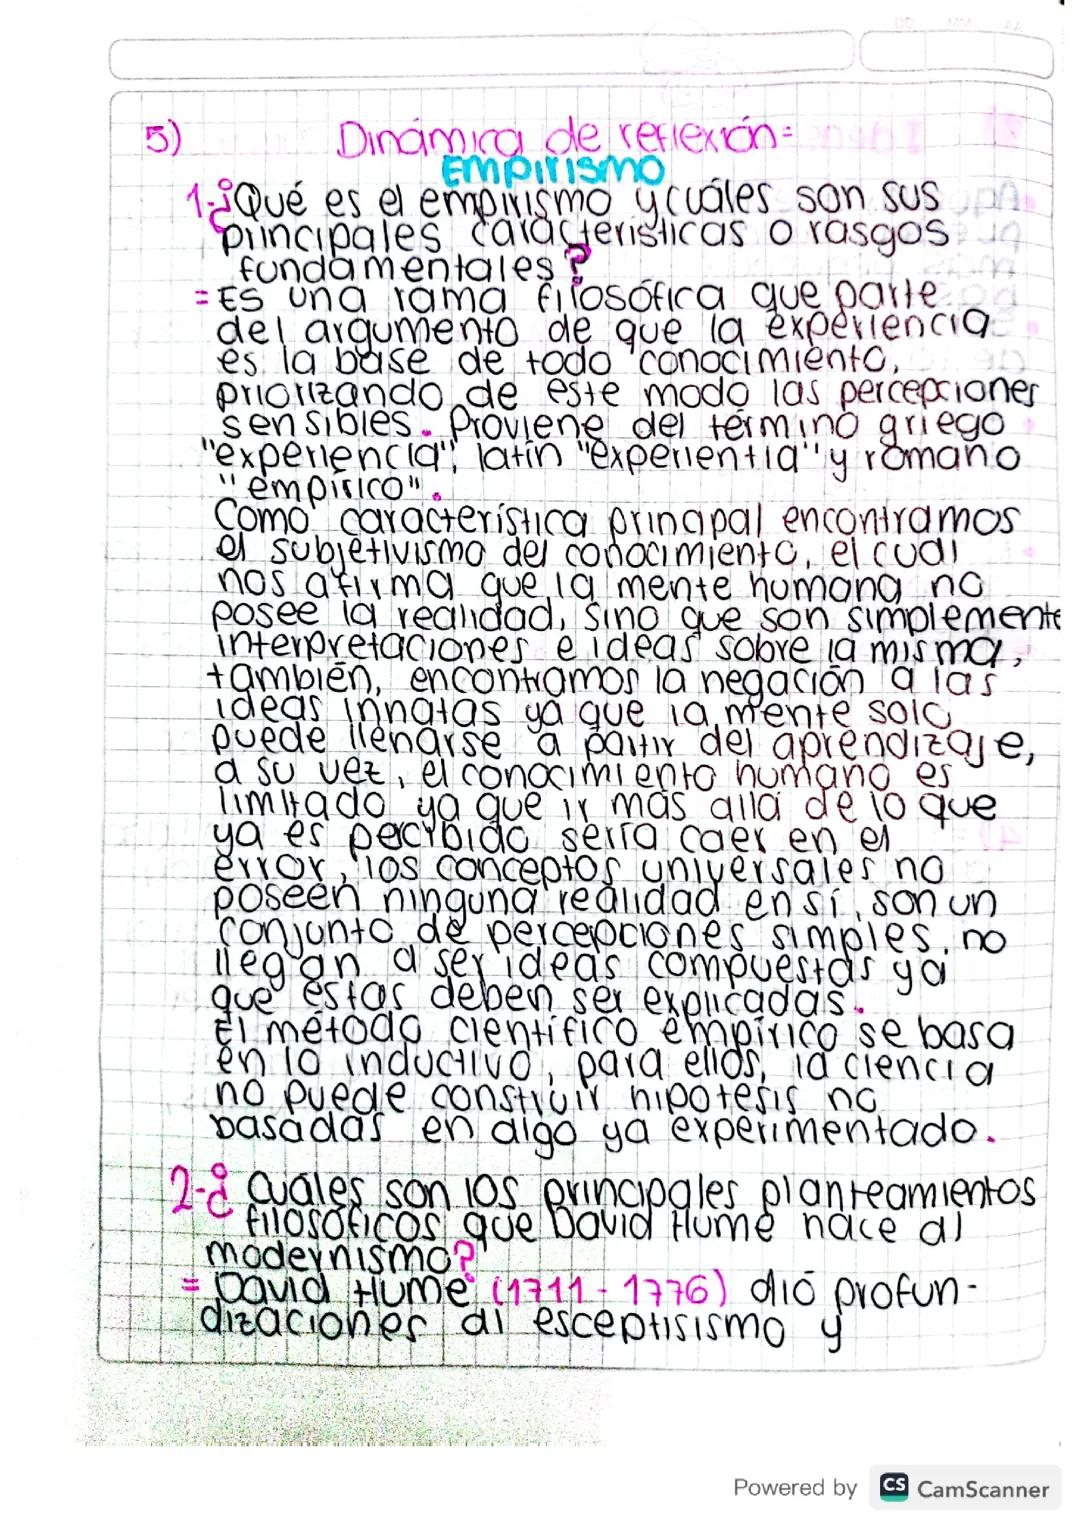 DD MM AA
5) Dinámica de reflexión=
EMPIRISMO
1-¿Qué es el empirismo y cuáles son sus
principales características o rasgos
fundamentales?
= Es una rama filosófica que parte
del argumento de que la experiencia
es la base de todo conocimiento,
priorizando de este modo las percepciones
sensibles. Proviene del término griego
"experiencia", latín "experientia" y romano
"empírico".
Como característica principal encontramos
el subjetivismo del conocimiento, el cual
nos afirma que la mente humana no
posee la realidad, sino que son simplemente
interpretaciones e ideas sobre la misma,
también, encontramos la negación a las
ideas innatas ya que la mente solo
puede llenarse a partir del aprendizaje,
a su vez, el conocimiento humano es
limitado ya que ir más allá de lo que
ya es percibido sería caer en el
error, los conceptos universales no
poseen ninguna realidad en sí, son un
conjunto de percepciones simples, no
llegan a ser ideas compuestas ya
que estas deben ser explicadas.
El método científico empírico se basa
en lo inductivo, para ellos, la ciencia
no puede construir hipotesis no
basadas en algo ya experimentado.
2-¿Cuáles son los principales planteamientos
filosóficos que David Hume hace al
modernismo?
= David Hume (1711-1776) dió profun-
dizaciones al esceptisismo y
Powered by CS CamScanner